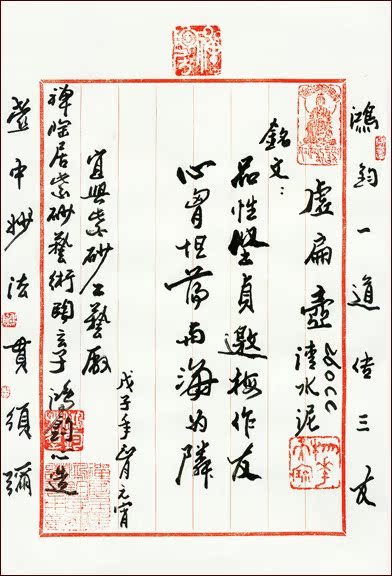 鴻鈞一道傳三友
虛扁壺
200cc
清水泥
銘文：
品性堅貞邀梅作友
心胷坦蕩與海為隣
戊子年正月元宵
宜興紫砂工藝廠
禪陶居紫砂藝術陶玄子鴻鈞心造
壺中妙法貫須彌